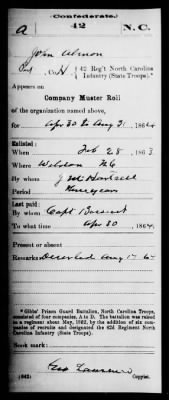 (Confederate.)
a 42 N.C.
John Almon
Pvt, Co. H, 42 Reg't North Carolina
Infantry (State Troops).
Appears on
Company Muster Roll
of the organization named above,
for Apr 30 to Aug 31, 1864.
Enlisted:
When Feb 28, 1863
Where Weldon N.C.
By whom J M Hartsell
Period Three years
Last paid:
By whom Capt
To what time Apr 30, 1864.
Present or absent
Remarks: Deserted Aug 1st 64
*Gibbs' Prison Guard Battalion, North Carolina Troops,
consisted of four companies, A to D. The battalion was raised
to a regiment about May, 1862, by the addition of six com-
panies of recruits and designated the 42d Regiment North
Carolina Infantry.
Book mark:
(642) Copyist.